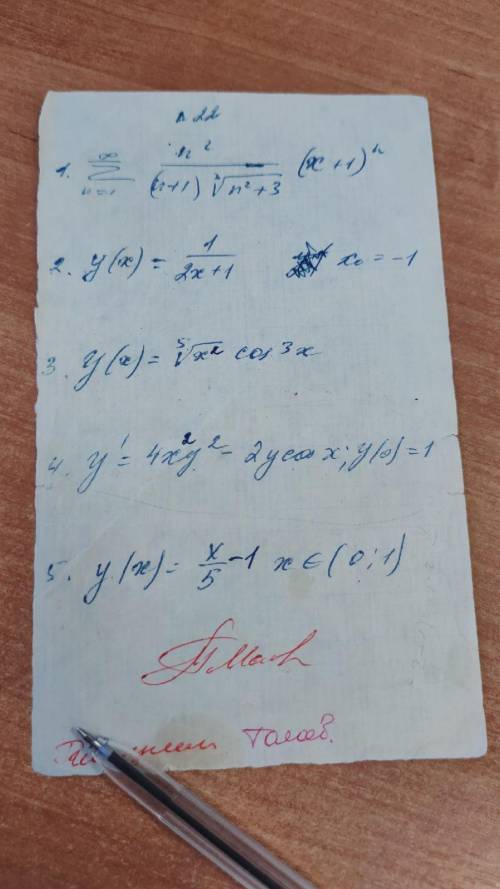 n 22
1. ∞ ∑ n=1 n² / (n+1) ³√n²+3 (x+1)ⁿ
2. y(x) = 1 / 2x+1 x₀ = -1
3. y(x) = ⁵√x² cos 3x
4. y' = 4x²y² - 2y cos x; y(0) = 1
5. y(x) = x/5 - 1 x ∈ (0; 1)